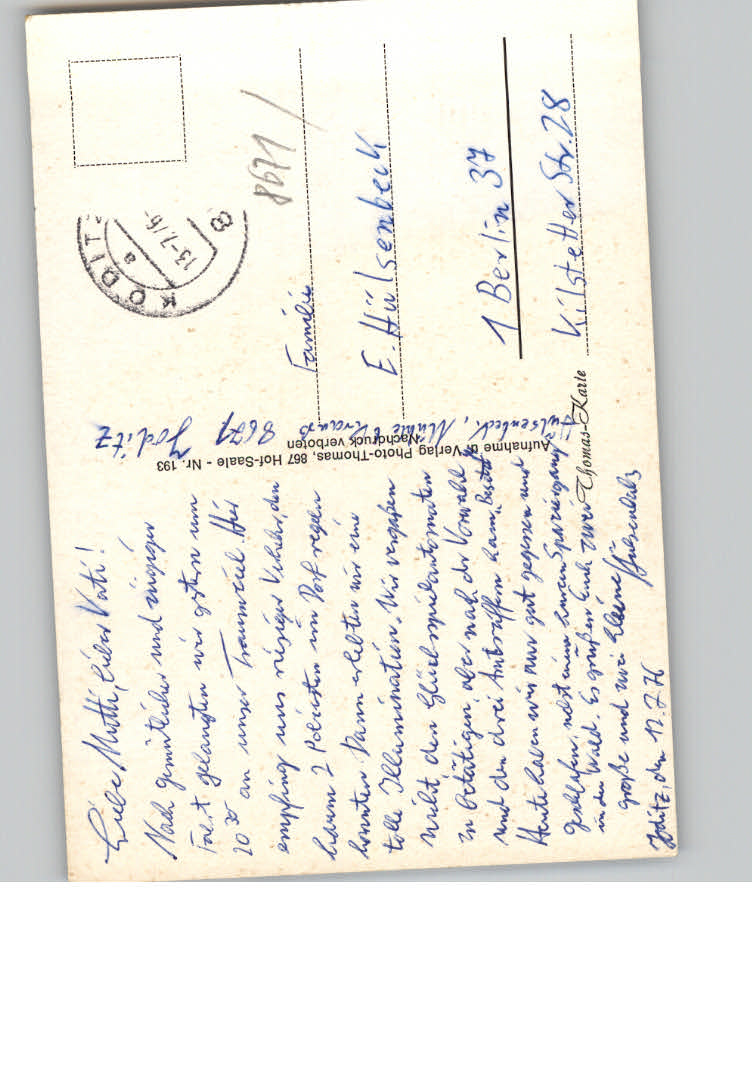 Liebe Mutti, lieber Vati!
Nach gemütlicher und zügiger
Fahrt gelangten wir gestern um
20 30 an unser Traumziel. Hier
empfing uns riesiger Verkehr, den
kaum 2 Polizisten im Dorf regeln
konnten. Dann erlebten wir eine
tolle Illumination. Wir vergaßen
nicht den Glücksspielautomaten
zu betätigen, aber nach der Vorwahl
und den drei
Heute haben wir nur gut gegessen und
geschlafen, nebst einem kurzen Spaziergang
in den Wald. Es grüßen Euch zwei
große und zwei kleine
Joditz, den 12.7.76
Hülsenbeck, Mühle Krauß
8671 Joditz
Aufnahme u. Verlag Photo-Thomas, 867 Hof-Saale - Nr. 193
Nachdruck verboten
Thomas-Karte
KODIT
a
13.-7.76-
8
8671
Familie
E. Hülsenbeck
1 Berlin 37
Kilstetter Str. 28